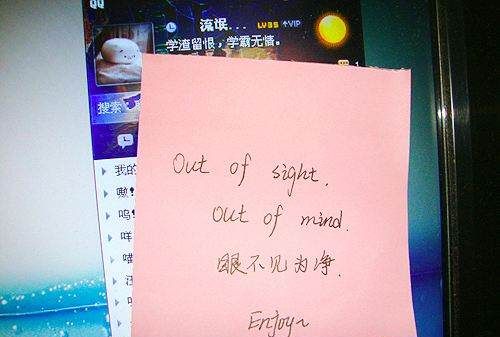 QQ
流氓... LV35 VIP
学渣留恨，学霸无情。
1
搜索
我的
嗷!
呜!
咩
喵
Out of sight.
Out of mind.
眼不见为净.
Enjoy~